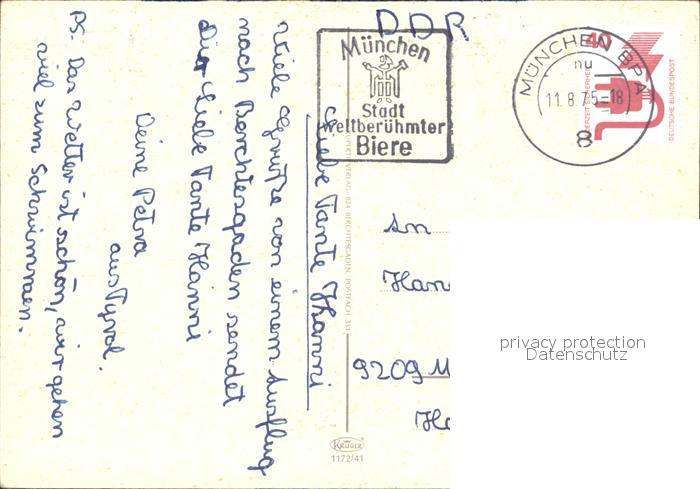 Liebe Tante Hanni
Viele Grüße von einem Ausflug
nach Berchtesgaden sendet
Dir liebe Tante Hanni
Deine Petra
aus Tyrol.
PS. Das Wetter ist schön, wir gehen
viel zum Schwimmen.
DDR
München
Stadt
weltberühmter
Biere
MÜNCHEN BPA
nu
11.8.75-18
8
40
DEUTSCHE BUNDESPOST
VERLAG, 824 BERCHTESGADEN POSTFACH 331
An
Han
9209 M
Ha
privacy protection
Datenschutz
KRÜGER
1172/41